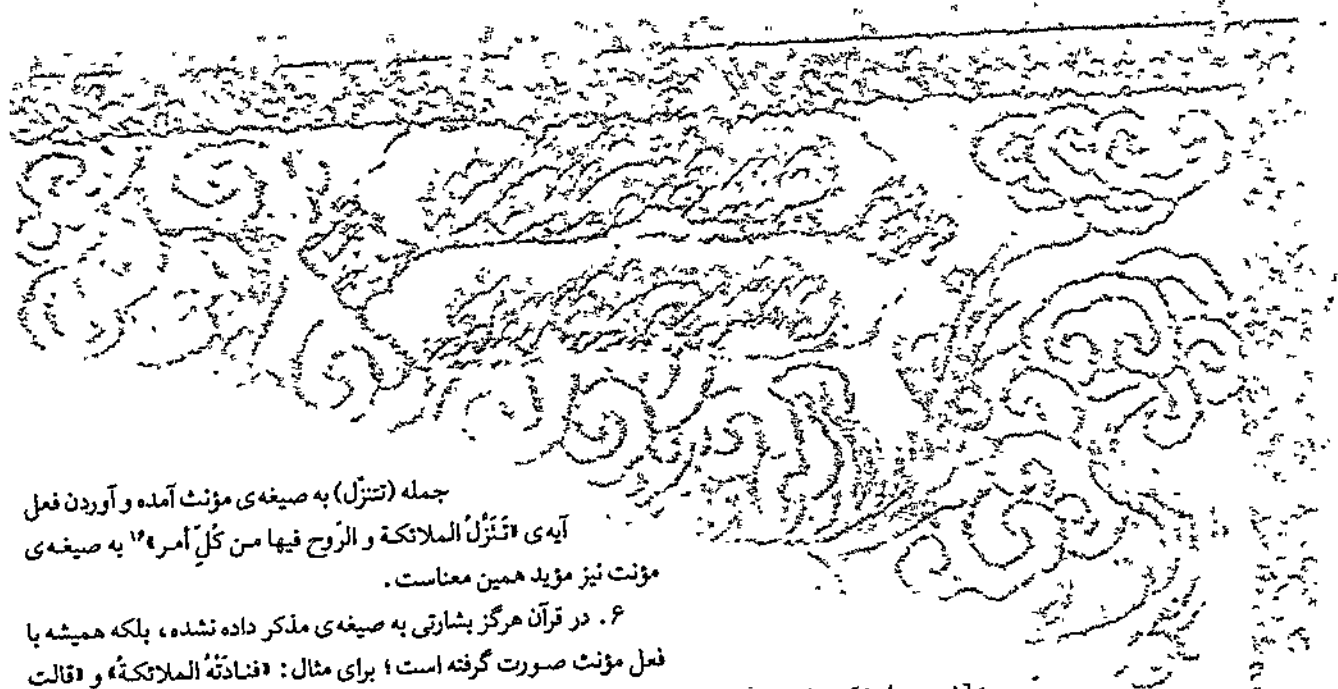 جمله (تتنزّل) به صیغه‌ی مؤنث آمده و آوردن فعل
آیه‌ی «تَنَزَّلُ الملائکة و الرّوح فیها من کُلّ أمر»۱۶ به صیغه‌ی
مؤنت نیز مؤید همین معناست.
۶. در قرآن هرگز بشارتی به صیغه‌ی مذکر داده نشده، بلکه همیشه با
فعل مؤنث صورت گرفته است؛ برای مثال: «فنادَتْهُ الملائکةُ» و «قالت